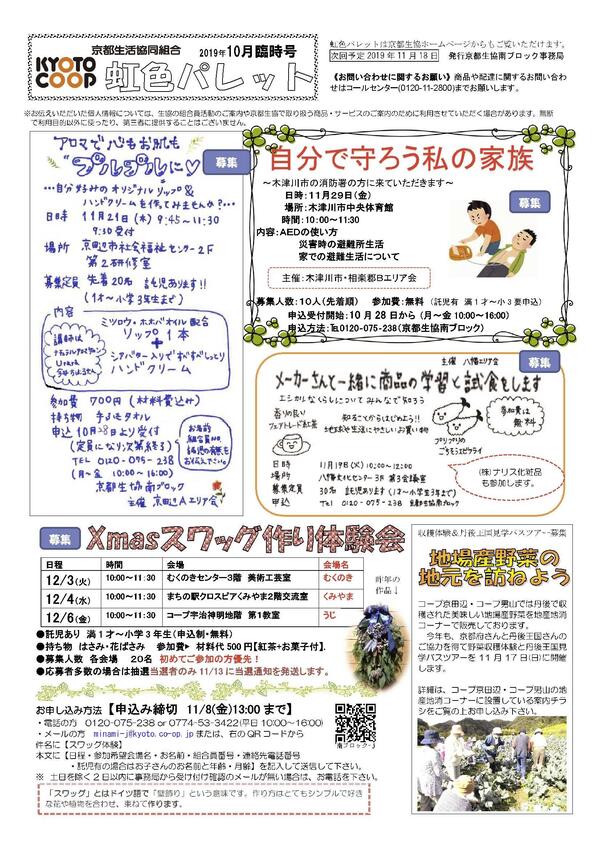 KYOTO
COOP
京都生活協同組合
2019年10月臨時号
虹色パレット
虹色パレットは京都生協ホームページからもご覧いただけます。
次回予定 2019年11月18日 発行京都生協南ブロック事務局
《お問い合わせに関するお願い》商品や配達に関するお問い合わ
せはコールセンター(0120-11-2800)までお願いします。
※お伝えいただいた個人情報については、生協の組合員活動のご案内や京都生協で取り扱う商品・サービスのご案内のために利用させていただく場合があります。無断
で利用目的以外に使ったり、第三者に提供することはございません。
アロマで心もお肌も
"プルプルに♡
募集
…自分好みのオリジナルリップ&
ハンドクリームを作ってみませんか?…
日時 11月21日(木) 9:45～11:30
9:30受付
場所 京田辺市社会福祉センター2F
第2研修室
募集定員 先着20名 託児あります!!
(1才～小学3年生まで)
内容
ミツロウ・ホホバオイル配合
リップ1本
+
シアバター入りですべすべしっとり
ハンドクリーム
講師は
参加費 700円(材料費込み)
持ち物 手ふきタオル
申込 10月28日より受付
(定員になり次第終了)
TEL 0120-075-238
(月～金 10:00～16:00)
京都生協南ブロック
主催 京田辺Aエリア会
お名前
組合員No.
託児の有無を
お伝え下さい。
自分で守ろう私の家族
～木津川市の消防署の方に来ていただきます～
日時:11月29日(金)
場所:木津川市中央体育館
時間:10:00～11:30
内容:AEDの使い方
災害時の避難所生活
家での避難生活について
募集
主催:木津川市・相楽郡Bエリア会
募集人数:10人(先着順) 参加費:無料 (託児有 満1才～小3要申込)
申込受付開始:10月28日から(月～金10:00～16:00)
申込方法:℡0120-075-238(京都生協南ブロック)
主催 八幡エリア会
募集
メーカーさんと一緒に商品の学習と試食をします
エシカルなくらしについてみんなで知ろう
香りの良い
フェアトレード紅茶
知ることからはじめよう!!
地球や生活にやさしいお買い物
プリプリの
ごちそうエビフライ
参加費は
無料
日時 11月19日(火)10:00～12:00
場所 八幡文化センター3F 第3会議室
募集定員 30名 託児あります(1才～小学生3年まで)
申込 Tel 0120-075-238 京都生協南ブロック
(株)ナリス化粧品
も参加します。
募集
Xmasスワッグ作り体験会
日程 時間 会場 会場名
12/3(火) 10:00～11:30 むくのきセンター3階 美術工芸室 むくのき
12/4(水) 10:00～11:30 まちの駅クロスピアくみやま2階交流室 くみやま
12/6(金) 10:00～11:30 コープ宇治神明地階 第1教室 うじ
昨年の
作品↓
●託児あり 満1才～小学3年生(申込制・無料)
●持ち物 はさみ・花ばさみ 参加費▶ 材料代500円【紅茶+お菓子付】.
●募集人数 各会場 20名 初めてご参加の方優先!
●応募者多数の場合は抽選当選者のみ11/13に当選通知を発送します。
お申し込み方法【申込み締切 11/8(金)13:00まで】
・電話の方 0120-075-238 or 0774-53-3422(平日10:00～16:00)
・メールの方 minami-j@kyoto.co-op.jpまたは、右のQRコードから
件名に【スワッグ体験】
本文に【日程・参加希望会場名・お名前・組合員番号・連絡先電話番号
・託児有の場合はお子さんのお名前と年齢・月齢】を記入して送信して下さい。
※ 土日を除く2日以内に事務局から受け付け確認のメールが無い場合は、お電話下さい。
南ブロック-j
「スワッグ」とはドイツ語で「壁飾り」という意味です。作り方はとてもシンプルで好き
な花や植物を合わせ、束ねて作ります。
収穫体験&丹後王国見学バスツアー募集
地場産野菜の
地元を訪ねよう
コープ京田辺・コープ男山では丹後で収
穫された美味しい地場産野菜を地産地消
コーナーで販売しております。
今年も、京都府さんと丹後王国さんの
ご協力を得て野菜収穫体験と丹後王国見
学バスツアーを11月17日(日)に開催
します。
詳細は、コープ京田辺・コープ男山の地
産地消コーナーに設置している案内チラ
シをご覧の上お申し込み下さい。